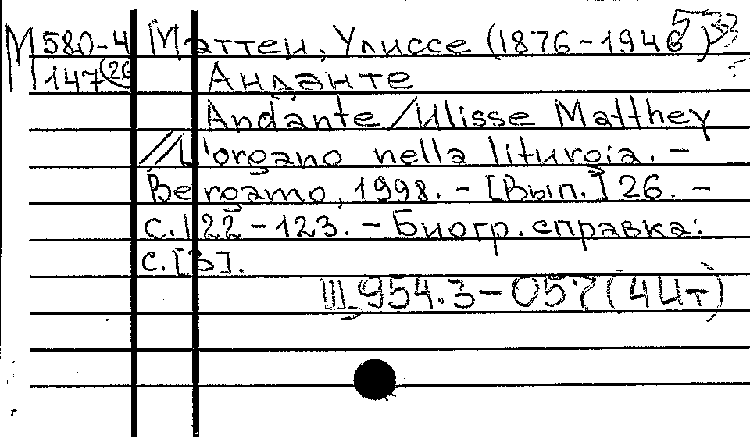 М580-4 Маттеи, Улиссе (1876-1946)
147(26 Анданте
Andante/Ulisse Matthey
//L'organo nella liturgia. -
Bergamo, 1998. - [Вып.] 26. -
с.122-123. - Биогр. справка:
с.[3].
III 954.3-057(4Ит)